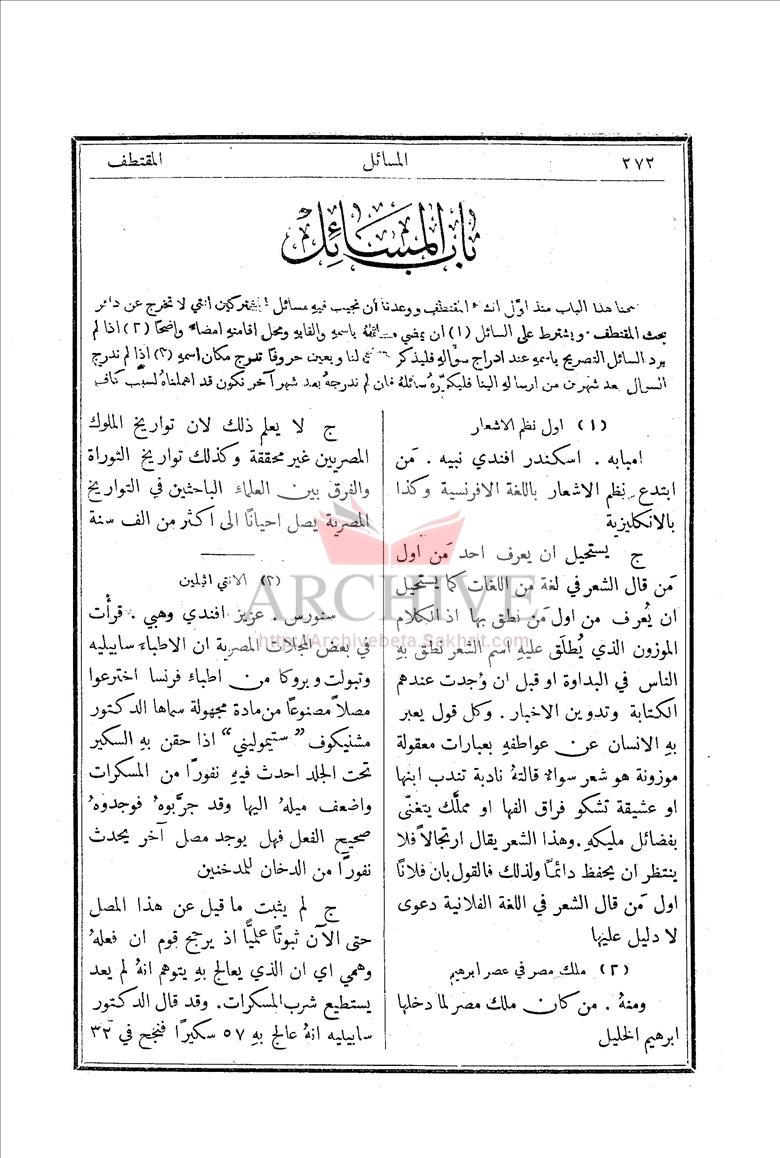 ٢٧٢
المسائل
المقتطف
باب المسائل
هذا الباب منذ اوّل المقتطف ووعدنا أن نجيب فيهِ مسائل المشتركين التي لا تخرج عن دائرة
بحث المقتطف. ويشترط على السائل (١) ان يمضي باسمهِ والقابهِ ومحل اقامتهِ امضاء واضحًا (٢) اذا لم
يرد السائل التصريح باسمهِ عند ادراج سؤالهِ فليذكر لنا ويعين حروفًا تدرج مكان اسمهِ (٣) اذا لم ندرج
السوال بعد شهرين من ارسالهِ الينا فليكرّرهُ سائلهُ فان لم ندرجهُ بعد شهر آخر نكون قد اهملناهُ لسبب كافٍ
(١) اول نظم الاشعار
امبابه. اسكندر افندي نبيه. مَن
ابتدع نظم الاشعار باللغة الافرنسية وكذا
بالانكليزية
ج يستحيل ان يعرف احد مَن اول
مَن قال الشعر في لغة من اللغات كما يستحيل
ان يُعرف من اول مَن نطق بها اذ الكلام
الموزون الذي يُطلَق عليهِ اسم الشعر نطق بهِ
الناس في البداوة او قبل ان وُجدت عندهم
الكتابة وتدوين الاخبار. وكل قول يعبر
بهِ الانسان عن عواطفهِ بعبارات معقولة
موزونة هو شعر سواء قالتهُ نادبة تندب ابنها
او عشيقة تشكو فراق الفها او مملَّك يتغنّى
بفضائل مليكهِ. وهذا الشعر يقال ارتجالاً فلا
ينتظر ان يحفظ دائمًا ولذلك فالقول بان فلانًا
اول مَن قال الشعر في اللغة الفلانية دعوى
لا دليل عليها
(٢) ملك مصر في عصر ابرهيم
ومنهُ. من كان ملك مصر لما دخلها
ابرهيم الخليل
ج لا يعلم ذلك لان تواريخ الملوك
المصريين غير محققة وكذلك تواريخ التوراة
والفرق بين العلماء الباحثين في التواريخ
المصرية يصل احيانًا الى اكثر من الف سنة
(٣) الانتي اثيلين
سنورس. عزيز افندي وهبي. قرأْت
في بعض المجلات المصرية ان الاطباء سابيليه
وتبولت وبروكا من اطباء فرنسا اخترعوا
مصلاً مصنوعًا من مادة مجهولة سماها الدكتور
مشنيكوف "ستيموليني" اذا حقن بهِ السكير
تحت الجلد احدث فيهِ نفورًا من المسكرات
واضعف ميلهُ اليها وقد جرَّبوهُ فوجدوهُ
صحيح الفعل فهل يوجد مصل آخر يحدث
نفورًا من الدخان للمدخنين
ج لم يثبت ما قيل عن هذا المصل
حتى الآن ثبوتًا علميًّا اذ يرجح قوم ان فعلهُ
وهمي اي ان الذي يعالج بهِ يتوهم انهُ لم يعد
يستطيع شرب المسكرات. وقد قال الدكتور
سابيليه انهُ عالج بهِ ٥٧ سكيرًا فنجح في ٣٢
ARCHIVE
http://Archivebeta.Sakhrit.com